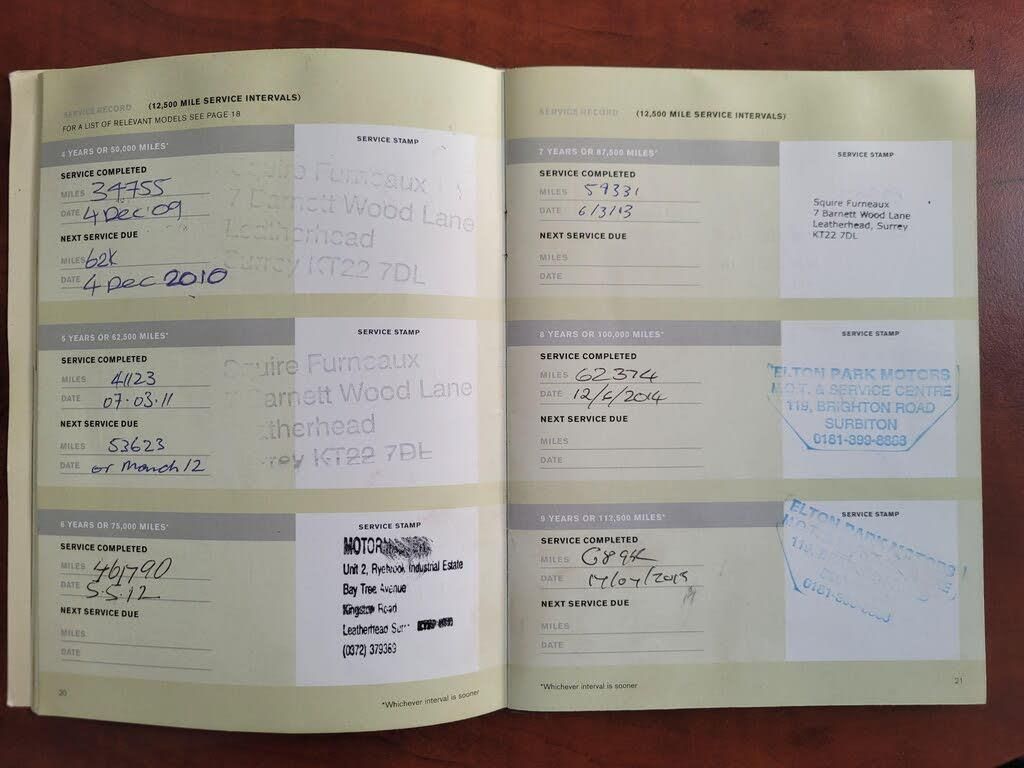 SERVICE RECORD (12,500 MILE SERVICE INTERVALS)
FOR A LIST OF RELEVANT MODELS SEE PAGE 18
4 YEARS OR 50,000 MILES*
SERVICE STAMP
SERVICE COMPLETED
MILES 34755
DATE 4 Dec '09
NEXT SERVICE DUE
MILES 62K
DATE 4 Dec 2010
Squire Furneaux
7 Barnett Wood Lane
Leatherhead
Surrey KT22 7DL
5 YEARS OR 62,500 MILES*
SERVICE STAMP
SERVICE COMPLETED
MILES 41123
DATE 07.03.11
NEXT SERVICE DUE
MILES 53623
DATE or March 12
Squire Furneaux
7 Barnett Wood Lane
Leatherhead
Surrey KT22 7DL
6 YEARS OR 75,000 MILES*
SERVICE STAMP
SERVICE COMPLETED
MILES
DATE 5.5.12
NEXT SERVICE DUE
MILES
DATE
Unit 2, Ryebrook Industrial Estate
Bay Tree Avenue
Kingston Road
Leatherhead
(0372) 379369
20
*Whichever interval is sooner
SERVICE RECORD (12,500 MILE SERVICE INTERVALS)
7 YEARS OR 87,500 MILES*
SERVICE STAMP
SERVICE COMPLETED
MILES 59331
DATE 6/3/13
NEXT SERVICE DUE
MILES
DATE
Squire Furneaux
7 Barnett Wood Lane
Leatherhead, Surrey
KT22 7DL
8 YEARS OR 100,000 MILES*
SERVICE STAMP
SERVICE COMPLETED
MILES 62374
DATE 12/6/2014
NEXT SERVICE DUE
MILES
DATE
ELTON PARK MOTORS
M.O.T. & SERVICE CENTRE
119, BRIGHTON ROAD
SURBITON
0181-399-8888
9 YEARS OR 112,500 MILES*
SERVICE STAMP
SERVICE COMPLETED
MILES
DATE
NEXT SERVICE DUE
MILES
DATE
ELTON PARK MOTORS
*Whichever interval is sooner
21